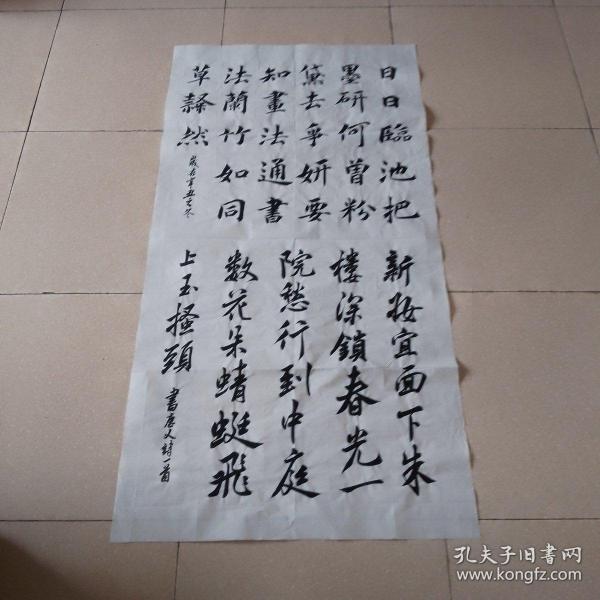 日日臨池把
墨研何曾粉
黛去爭妍要
知畫法通書
法蘭竹如同
草隸然
歲在辛丑之冬
新妝宜面下朱
樓深鎖春光一
院愁行到中庭
數花朵蜻蜓飛
上玉搔頭
書唐人詩一首
孔夫子旧书网
www.kongfz.com